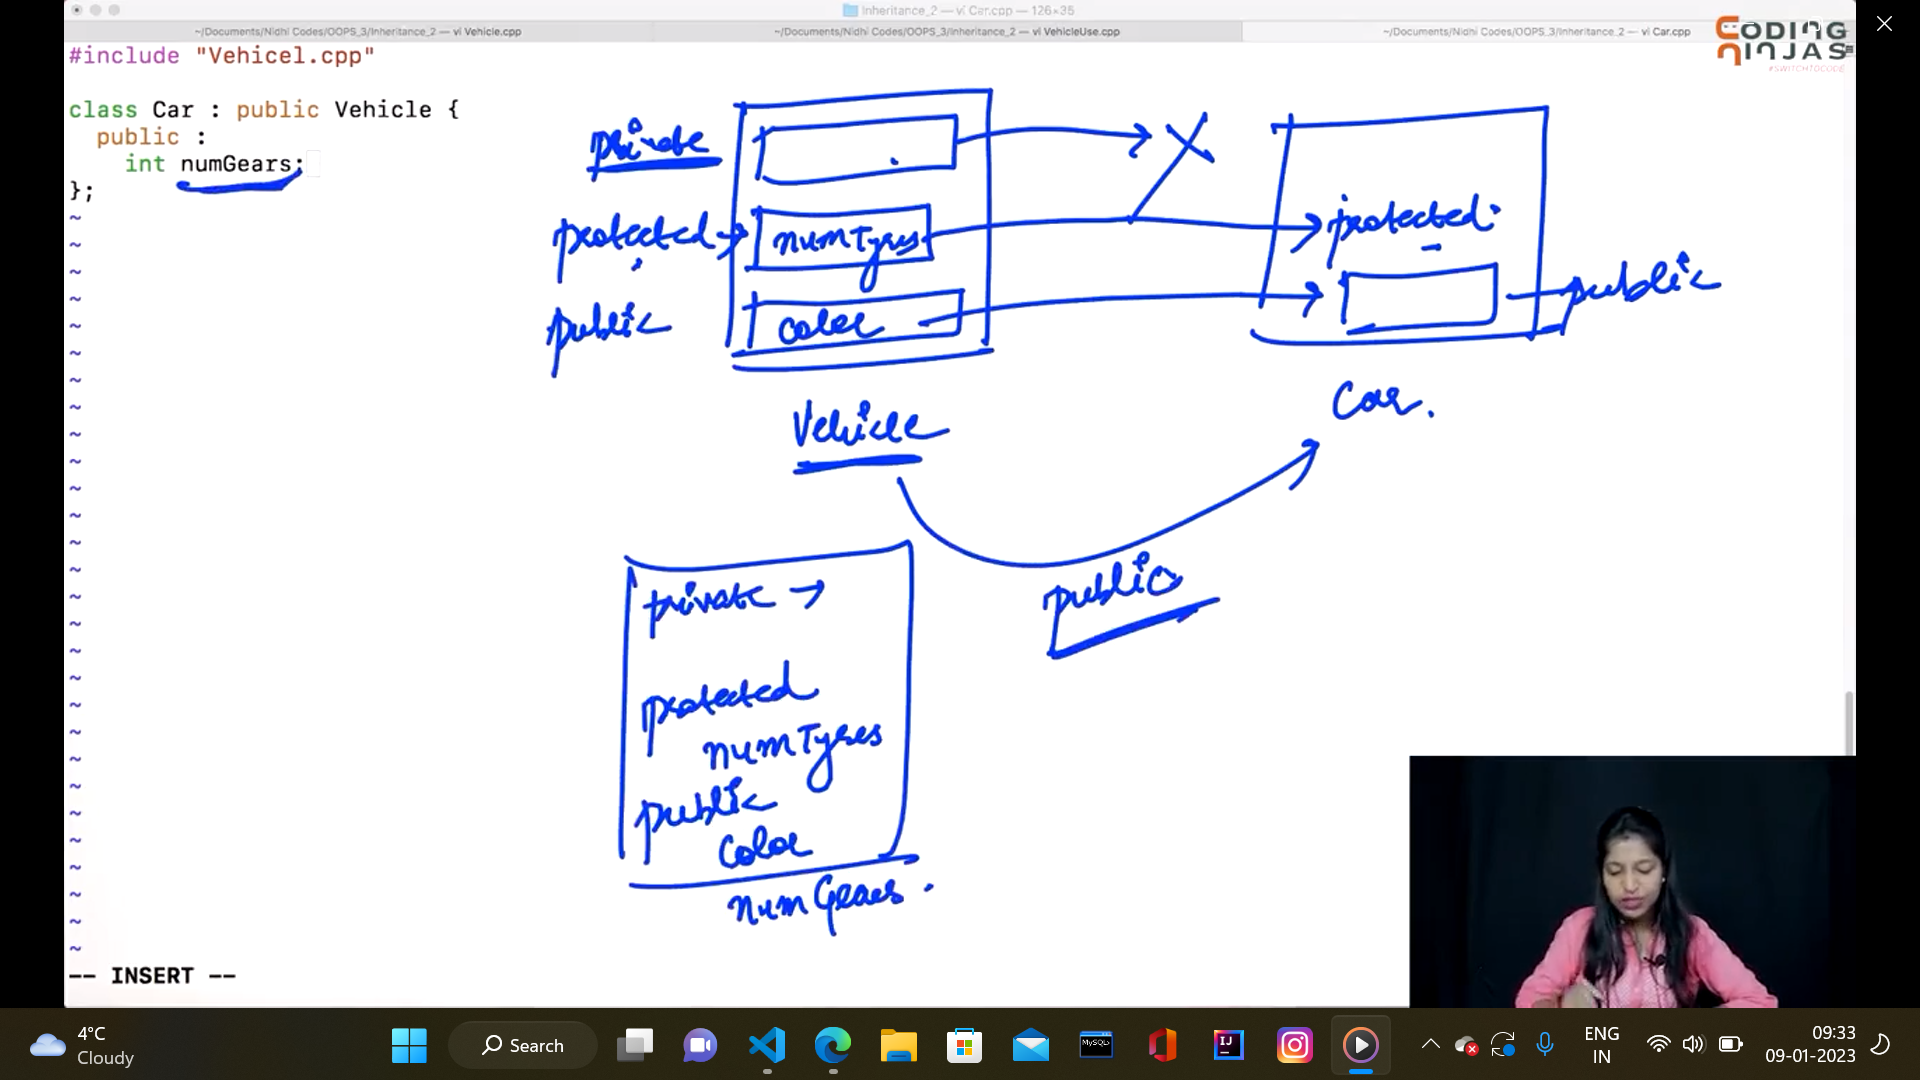 Inheritance_2 — vi Car.cpp — 126×35
~/Documents/Nidhi Codes/OOPS_3/Inheritance_2 — vi Vehicle.cpp
~/Documents/Nidhi Codes/OOPS_3/Inheritance_2 — vi VehicleUse.cpp
~/Documents/Nidhi Codes/OOPS_3/Inheritance_2 — vi Car.cpp
CODING
NINJAS
#SWITCHTOCODE
#include "Vehicel.cpp"
class Car : public Vehicle {
public :
int numGears;
};
~
~
~
~
~
~
~
~
~
~
~
~
~
~
~
~
~
~
~
~
~
~
~
~
~
~
~
~
-- INSERT --
private
protected
numTyres
protected
public
color
public
Vehicle
Car.
public
private
protected
numTyres
public
color
numGears.
4°C
Cloudy
Search
MySQL
IJ
ENG
IN
09:33
09-01-2023